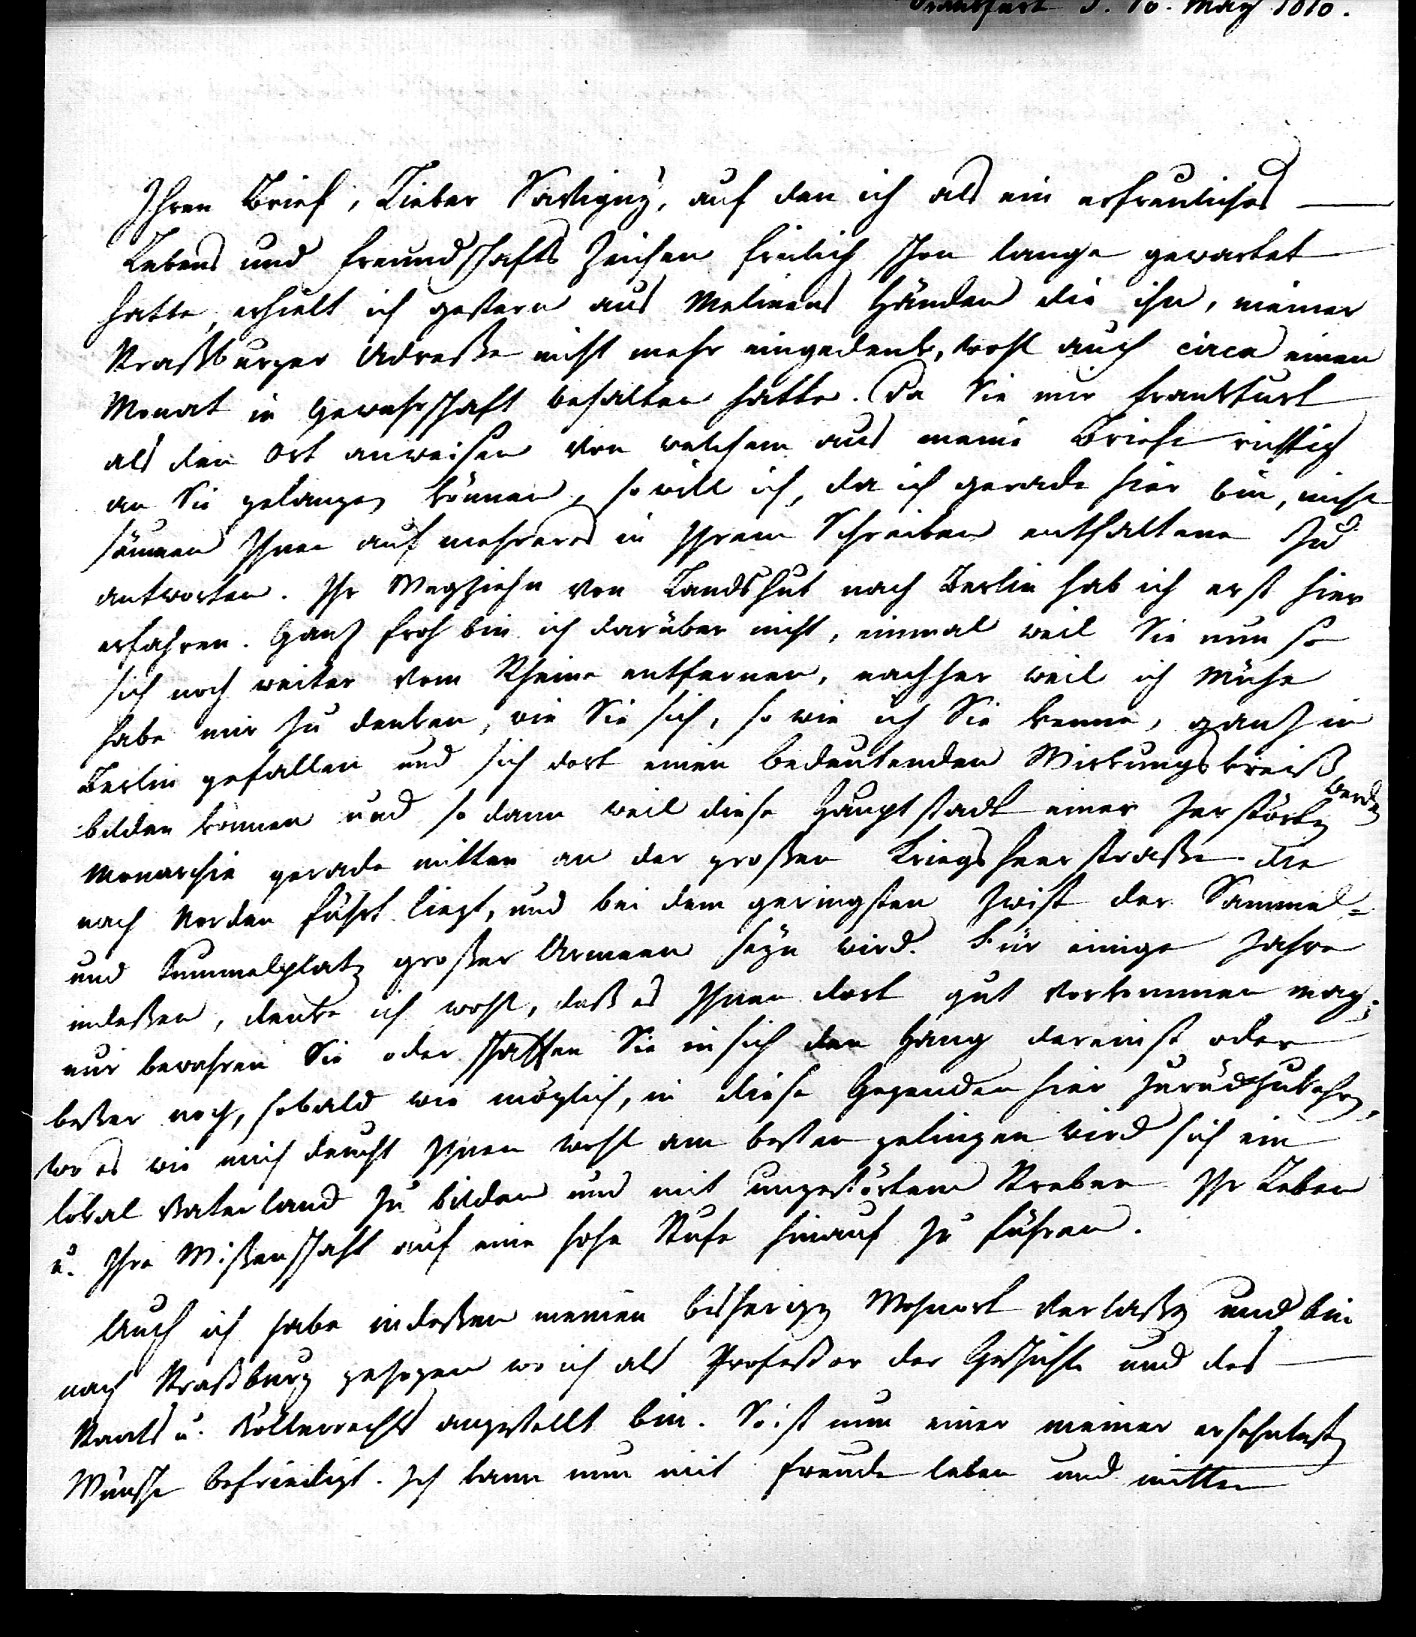 Frankfurt d. 10. May 1810.
Ihren Brief, Lieber Savigny, auf den ich als ein erfreuliches
Lebens und Freundschafts Zeichen freilich schon lange gewartet
hatte, erhielt ich gestern aus Melinens Händen die ihn, meiner
Straßburger Adresse nicht mehr eingedenk, wohl auch circa einen
Monat in Gewahrschaft behalten hatte. Da Sie mir Frankfurt
als den Ort anweisen von welchem aus meine Briefe richtig
an Sie gelangen können, so will ich, da ich gerade hier bin, nicht
säumen Ihnen auf mehreres in Ihrem Schreiben enthaltene zu
antworten. Ihr Wegziehn von Landshut nach Berlin hab ich erst hier
erfahren. Ganz froh bin ich darüber nicht, einmal weil Sie nun so
sich noch weiter vom Rheine entfernen, nachher weil ich Mühe
habe mir zu denken, wie Sie sich, so wie ich Sie kenne, ganz in
Berlin gefallen und sich dort einen bedeutenden Wirkungskreiß
bilden können werden und so dann weil diese Hauptstadt einer zerstörten
Monarchie gerade mitten an der großen Kriegsheerstraße die
nach Norden führt liegt, und bei dem geringsten Zwist der Sammel=
und Tummelplatz großer Armeen seyn wird. Für einige Jahre
indeßen, denke ich wohl, daß es Ihnen dort gut vorkommen mag;
nur bewahren Sie oder schaffen Sie in sich den Hang dereinst oder
beßer noch, sobald wie möglich, in diese Gegenden hier zurückzukehren,
wo es wie mich deucht Ihnen wohl am besten gelingen wird sich ein
lokal Vaterland zu bilden und mit ungestörtem Streben Ihr Leben
u. Ihre Wißenschaft auf eine hohe Stufe hinauf zu führen.
Auch ich habe indeßen meinen bisherigen Wohnort verlaßen und bin
nach Straßburg gezogen wo ich als Professor der Geschichte und des
Staats u. Völkerrechts angestellt bin. So ist nun einer meiner ersehntesten
Wünsche befriedigt. Ich kann nun mit Freude leben und mitten